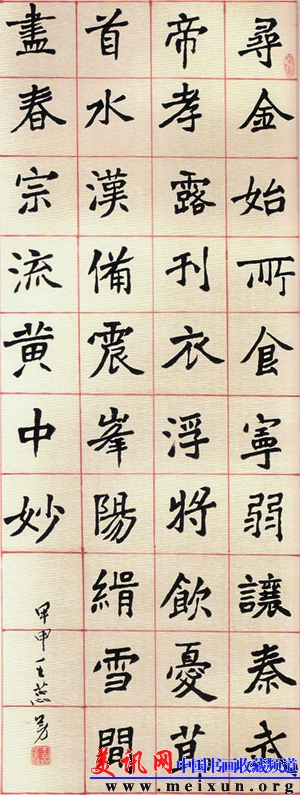 尋金始所食寧弱讓秦武
帝孝露刊衣浮將飲憂
首水漢備震峯陽絹雪
盡春宗流黄中妙
甲申王蕊芳
美讯网 中国书画收藏频道
www.meixun.org